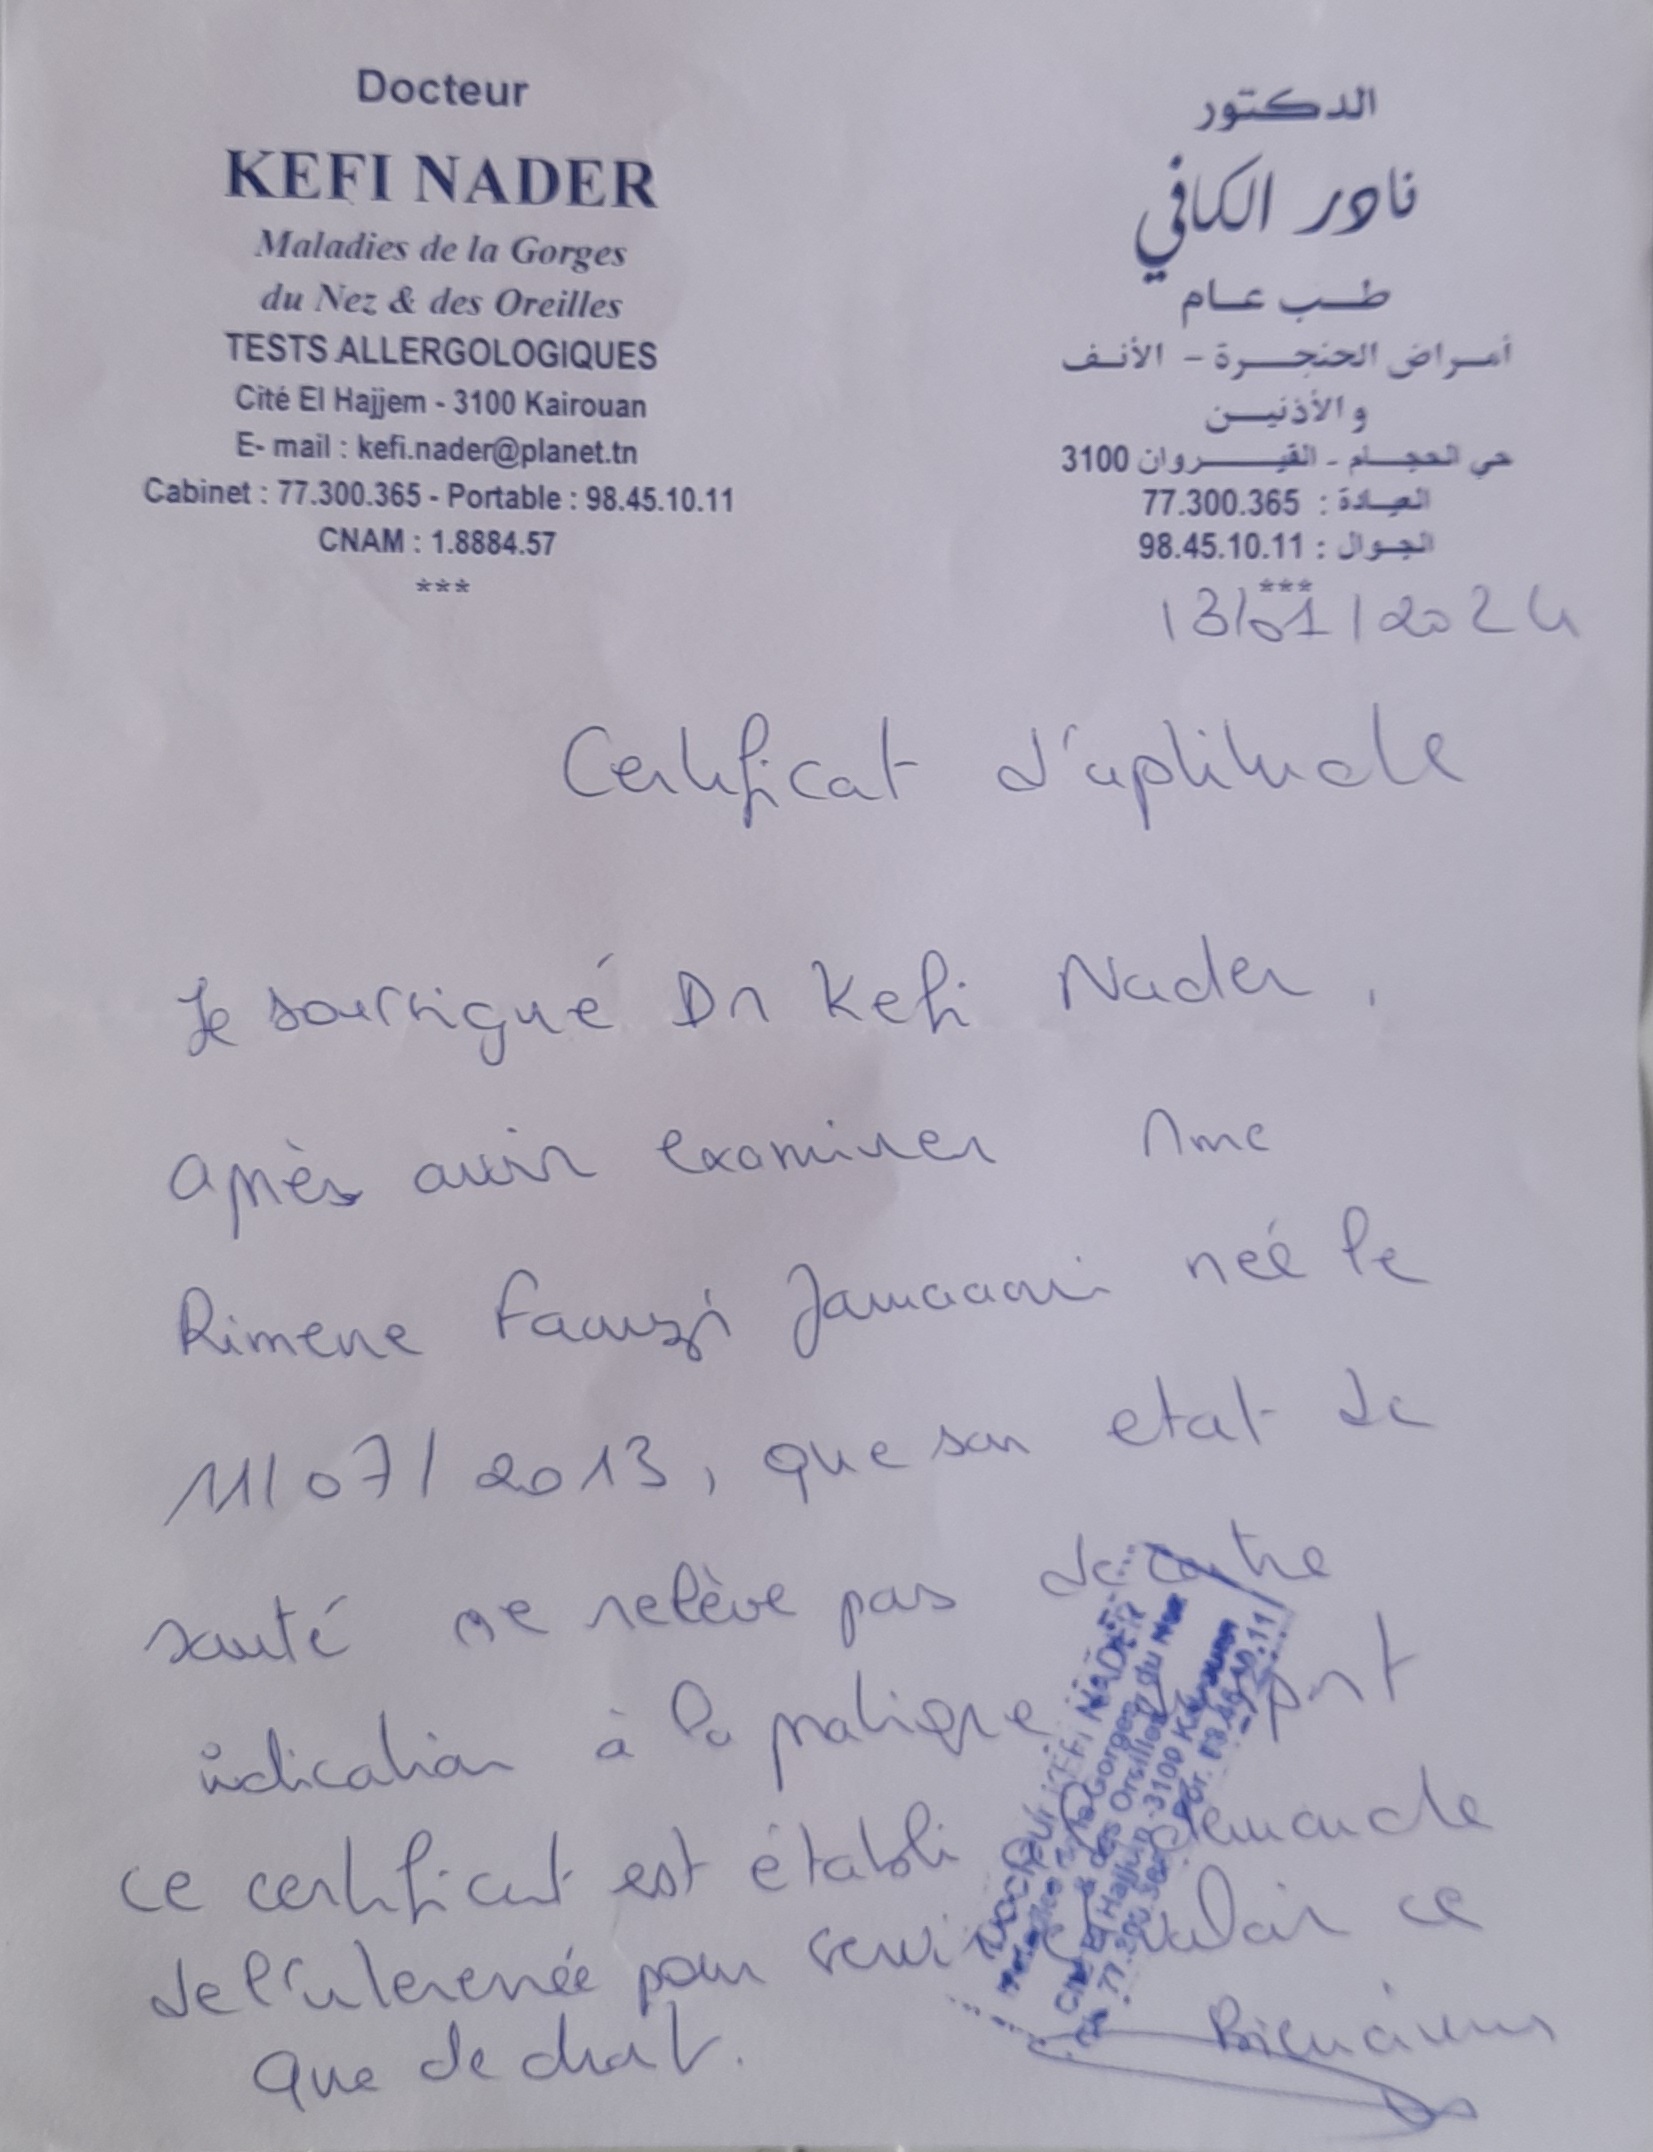 Docteur
KEFI NADER
Maladies de la Gorges
du Nez & des Oreilles
TESTS ALLERGOLOGIQUES
Cité El Hajjem - 3100 Kairouan
E- mail : kefi.nader@planet.tn
Cabinet : 77.300.365 - Portable : 98.45.10.11
CNAM : 1.8884.57
***
الدكتور
نادر الكافي
طب عام
أمراض الحنجرة - الأنف
والأذنين
حي الحجام - القيروان 3100
العيادة : 77.300.365
الجوال : 98.45.10.11
***
13/01/2024
Certificat d'aptitude
Je soussigné Dr Kefi Nader,
après avoir examiner Mme
Rimene Faouzi née le
11/07/2013, que son etat de
santé ne relève pas de contre
indication à la pratique sport
ce certificat est établi demande
de l'interessée pour servir valoir ce
que de droit.
KEFI NADER
Gorges du Nez
& des Oreilles
Cité El Hajjem 3100 Kairouan